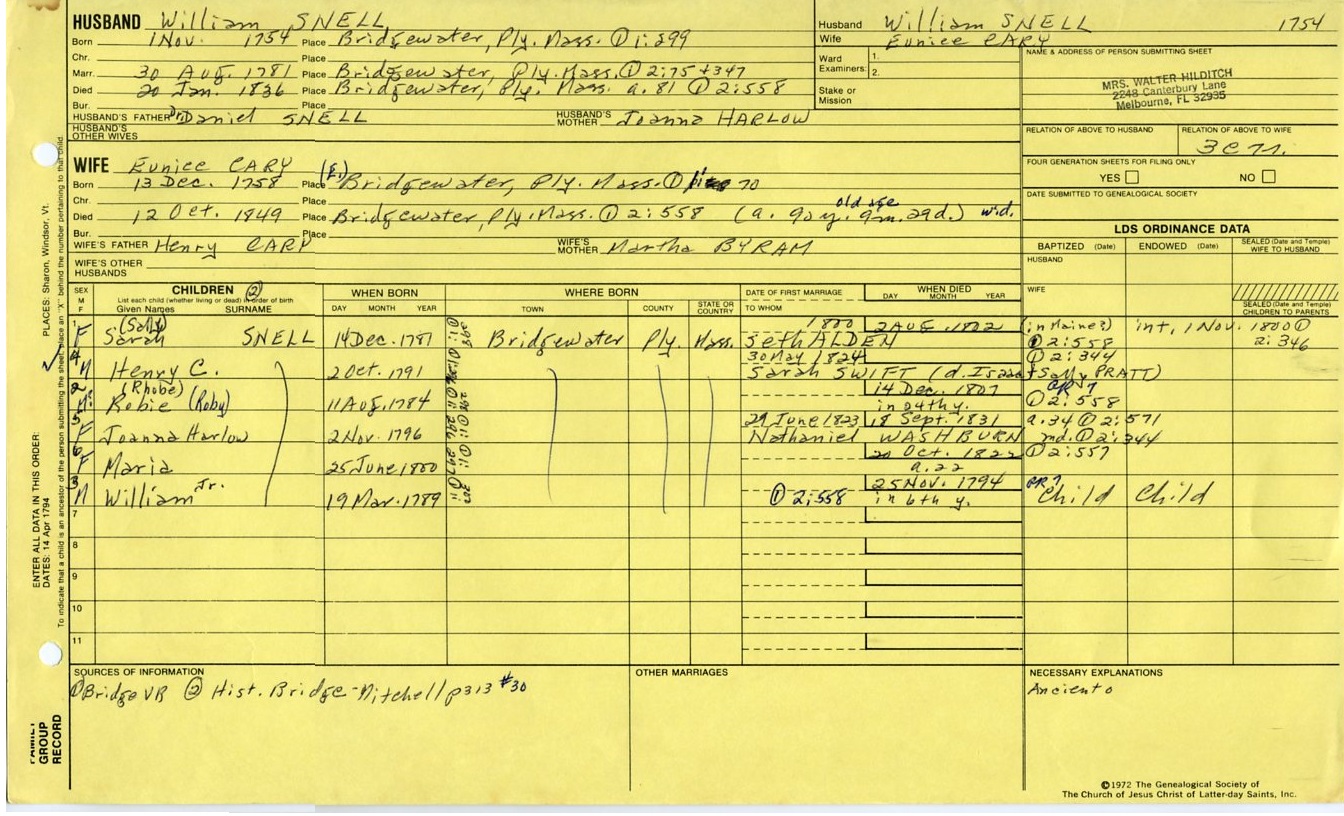 HUSBAND William SNELL
Born 1 Nov. 1754 Place Bridgewater, Ply. Mass. ① 1:299
Chr. Place
Marr. 30 Aug. 1781 Place Bridgewater, Ply. Mass. ① 2:75 + 347
Died 20 Jan. 1836 Place Bridgewater, Ply. Mass. a. 81 ① 2:558
Bur. Place
HUSBAND'S FATHER Daniel SNELL HUSBAND'S MOTHER Joanna HARLOW
HUSBAND'S OTHER WIVES
WIFE Eunice CARY
Born 13 Dec. 1758 Place (E.) Bridgewater, Ply. Mass. ① 70
Chr. Place
Died 12 Oct. 1849 Place Bridgewater, Ply. Mass. ① 2:558 (a. 90 y. 9m. 29d.) old age wid.
Bur. Place
WIFE'S FATHER Henry CARY WIFE'S MOTHER Martha BYRAM
WIFE'S OTHER HUSBANDS
Husband William SNELL 1754
Wife Eunice CARY
Ward Examiners: 1.
2.
Stake or Mission
NAME & ADDRESS OF PERSON SUBMITTING SHEET
MRS. WALTER HILDITCH
2248 Canterbury Lane
Melbourne, FL 32935
RELATION OF ABOVE TO HUSBAND RELATION OF ABOVE TO WIFE
FOUR GENERATION SHEETS FOR FILING ONLY
YES NO
DATE SUBMITTED TO GENEALOGICAL SOCIETY
LDS ORDINANCE DATA
BAPTIZED (Date) ENDOWED (Date) SEALED (Date and Temple) WIFE TO HUSBAND
HUSBAND
WIFE
SEALED (Date and Temple) CHILDREN TO PARENTS
SEX M F CHILDREN ② WHEN BORN WHERE BORN DATE OF FIRST MARRIAGE WHEN DIED
List each child (whether living or dead) in order of birth
Given Names SURNAME DAY MONTH YEAR TOWN COUNTY STATE OR COUNTRY TO WHOM DAY MONTH YEAR
1 F (Sally) 1800 2 AUG. 1802 (in Maine?) int, 1 Nov. 1800 ①
Sarah SNELL 14 Dec. 1781 Bridgewater Ply. Mass. Seth ALDEN ① 2:558 2:346
4 M Henry C. 2 Oct. 1791 30 May 1824 ① 2:344
Sarah SWIFT (d. Isaac + Sally PRATT)
2 (Rhobe) 14 Dec. 1807 GR 7
Robie (Roby) 11 Aug. 1784 ① 2:558
5 F Joanna Harlow 2 Nov. 1796 29 June 1823 18 Sept. 1831 a. 34 ① 2:571
Nathaniel WASHBURN md. ① 2:344
6 F Maria 25 June 1800 20 Oct. 1822 ① 2:557
a. 22
3 M William Jr. 19 Mar. 1789 25 NOV. 1794 GR 7 Child Child
① 2:558 in 6th y.
7
8
9
10
11
SOURCES OF INFORMATION
① Bridge VR ② Hist. Bridge-Mitchell p313 #30
OTHER MARRIAGES
NECESSARY EXPLANATIONS
©1972 The Genealogical Society of
The Church of Jesus Christ of Latter-day Saints, Inc.
PLACES: Sharon, Windsor, Vt.
ENTER ALL DATA IN THIS ORDER:
DATES: 14 Apr 1794
To indicate that a child is an ancestor of the person submitting the sheet, place an "X" behind the number pertaining to that child
FAMILY GROUP RECORD